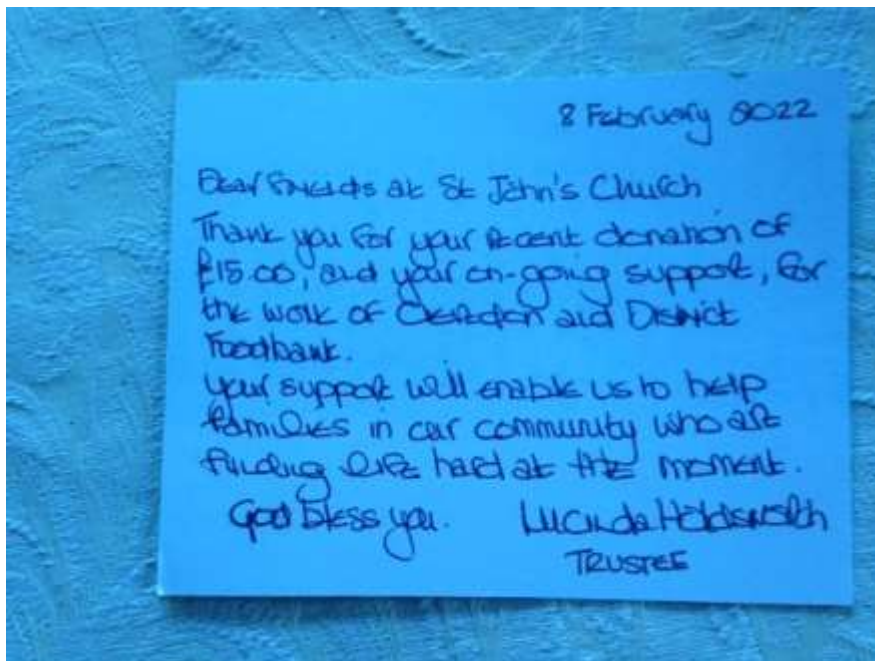 8 February 2022
Dear Friends at St John's Church
Thank you for your recent donation of
£15.00, and your on-going support, for
the work of Clevedon and District
Foodbank.
Your support will enable us to help
families in our community who are
finding life hard at the moment.
God bless you. Lucinda Holdsworth
TRUSTEE